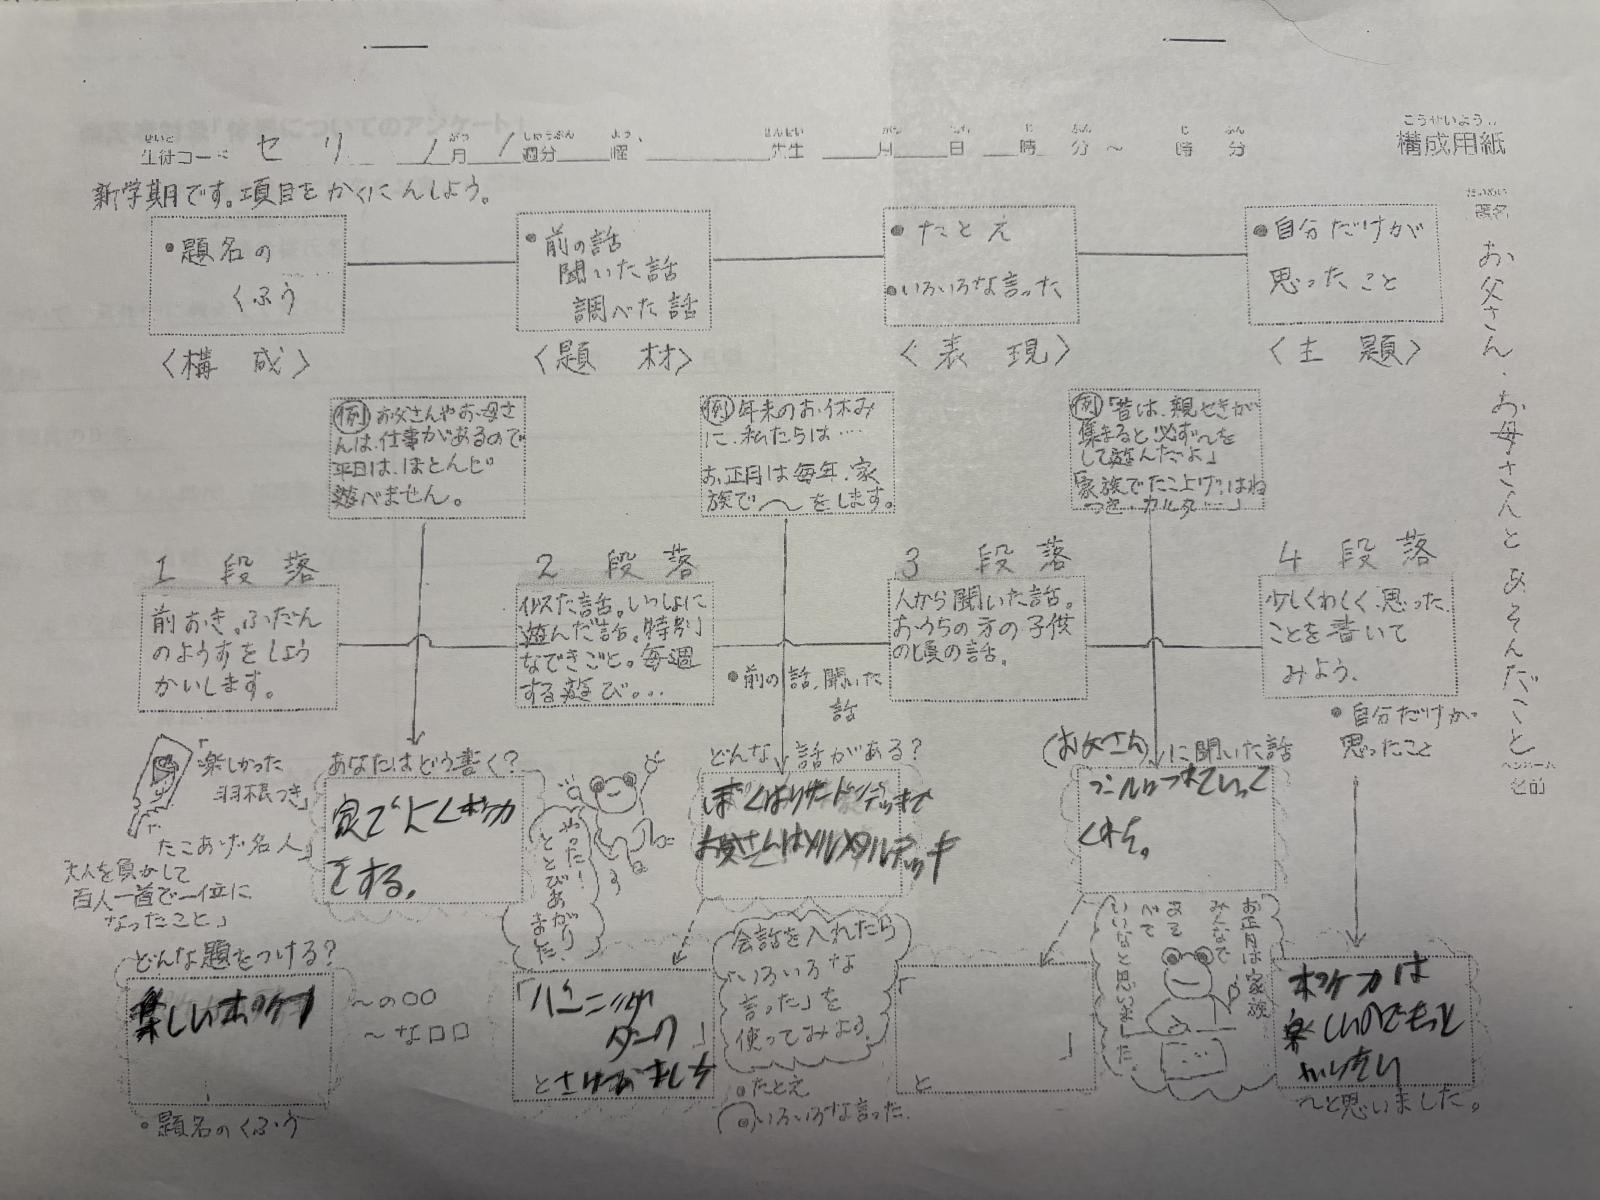 構成用紙
生徒コード セリ 1月 1週分 曜 先生 月 日 時 分 ～ 時 分
新学期です。項目をかくにんしよう。
題名
お父さん・お母さんとあそんだこと
名前
•自分だけが
思ったこと
〈主題〉
•たとえ
•いろいろな言った
〈表現〉
•前の話
聞いた話
調べた話
〈題材〉
•題名の
くふう
〈構成〉
例 お父さんやお母さ
んは、仕事があるので
平日は、ほとんど
遊べません。
例 年末のお休み
に、私たちは…
お正月は毎年、家
族で～をします。
例「昔は、親せきが
集まると必ず～を
して遊んだよ」
「家族でたこ上げ・はね
つき・カルタ…」
1段落
前おき。ふだん
のようすをしょう
かいします。
2段落
似た話。いっしょに
遊んだ話。特別
なできごと。毎週
する遊び...
•前の話、聞いた
話
3段落
人から聞いた話。
おうちの方の子供
の頃の話。
4段落
少しくわしく思った
ことを書いて
みよう。
•自分だけが
思ったこと
「楽しかった
羽根つき」
「たこあげ名人」
「大人を負かして
百人一首で一位に
なったこと」
あなたはどう書く？
家でよくポケカ
をする。
やった！
ととびあがり
ました。
どんな話がある？
お父さんはメルメタルデッキ
(お父さん)に聞いた話
プールにつれていって
くれた。
どんな題をつける？
楽しいポケカ
～の○○
～な□□
•題名のくふう
とさけびました
会話を入れたら
「いろいろな
言った」を
使ってみよう。
•たとえ
•いろいろな言った
「
」
と
お正月は家族
みんなで
いいなと思うん」だ。
ポケカは
楽しいのでもっと
やりたい
～と思いました。